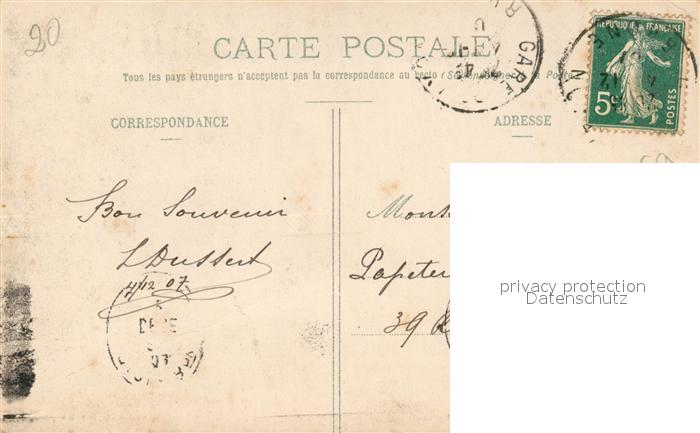 20
CARTE POSTALE
Tous les pays étrangers n'acceptent pas la correspondance au recto
à la Poste
CORRESPONDANCE
ADRESSE
REPUBLIQUE FRANÇAISE
5c
POSTES
GARE
Bon Souvenir
L Dussert
4/12 07
Papeter
39
privacy protection
Datenschutz